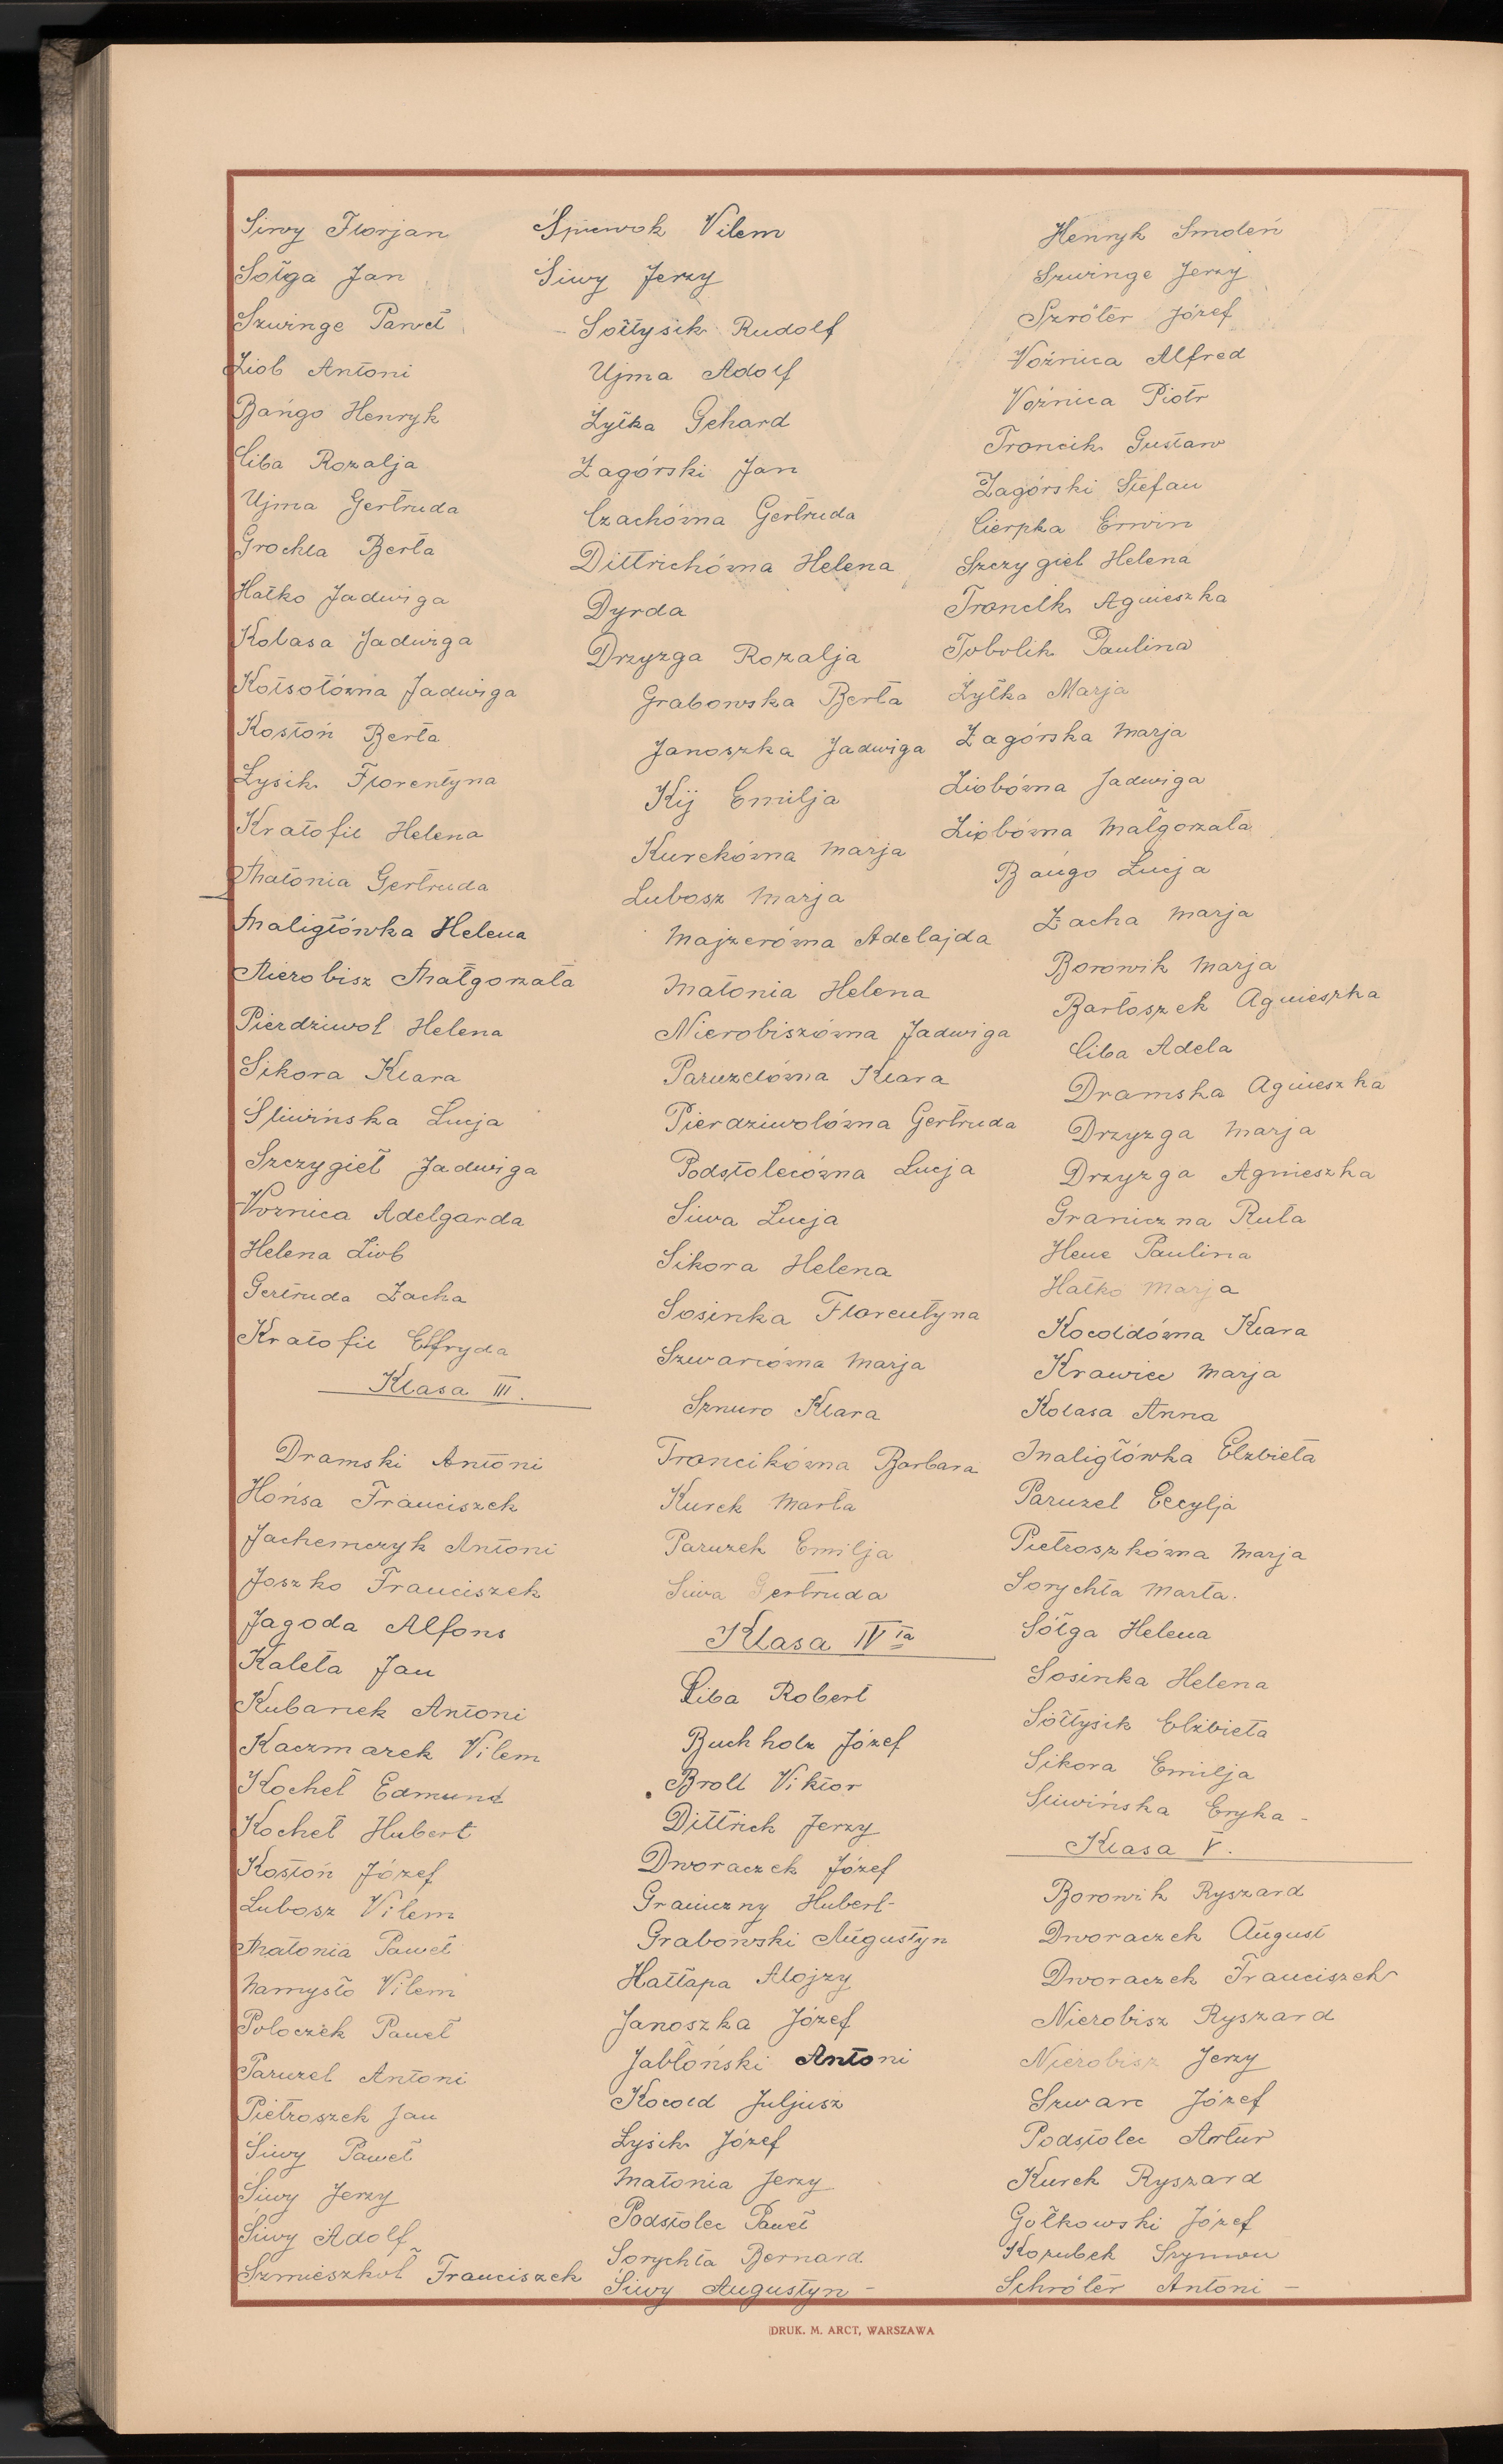 Siwy Florjan
Sołga Jan
Szwinge Paweł
Ziob Antoni
Bańgo Henryk
Ciba Rozalja
Ujma Gertruda
Grochla Berta
Hałko Jadwiga
Kolasa Jadwiga
Kołsołówna Jadwiga
Kostoń Berta
Łysik Florentyna
Kratofil Helena
Matonia Gertruda
Maligłówka Helena
Nierobisz Małgorzata
Pierdziwol Helena
Sikora Klara
Śliwińska Łucja
Szczygieł Jadwiga
Voznica Adelgarda
Helena Ziob
Gertruda Zacha
Kratofil Elfryda
Klasa III.
Dramski Antoni
Hońsa Franciszek
Jachemczyk Antoni
Joszko Franciszek
Jagoda Alfons
Kaleta Jan
Kubanek Antoni
Kaczmarek Vilem
Kocheł Edmund
Kocheł Hubert
Kostoń Józef
Lubosz Vilem
Matonia Paweł
Namysło Vilem
Poloczek Paweł
Paruzel Antoni
Pietroszek Jan
Siwy Paweł
Siwy Jerzy
Siwy Adolf
Szmieszkoł Franciszek
Śpiewok Vilem
Siwy Jerzy
- Sołtysik Rudolf
Ujma Adolf
Zyłka Gehard
Zagórski Jan
Czachówna Gertruda
Dittrichówna Helena
Dyrda
Drzyzga Rozalja
Grabowska Berta
Janoszka Jadwiga
Kij Emilja
Kurckówna Marja
Lubosz Marja
Majzerówna Adelajda
Matonia Helena
Nierobiszówna Jadwiga
Paruzelówna Klara
Pierdziwolówna Gertruda
Podstolecówna Łucja
Siwa Łucja
Sikora Helena
Sosinka Florentyna
Szwarcówna Marja
Sznuro Klara
Troncikówna Barbara
Kurek Marta
Paruzek Emilja
Siwa Gertruda
Klasa IV ta
Ciba Robert
Buchholz Józef
Broll Viktor
Dittrich Jerzy
Dworaczek Józef
Graniczny Hubert
Grabowski Augustyn
Hałłapa Alojzy
Janoszka Józef
Jabłoński Antoni
Kocold Juljusz
Łysik Józef
Matonia Jerzy
Podstolec Paweł
Sorychta Bernard
Siwy Augustyn -
Henryk Smoleń
Szwinge Jerzy
Szröter Józef
Voźnica Alfred
Voźnica Piotr
Troncik Gustaw
Zagórski Stefan
Cierpka Erwin
Szczygieł Helena
Troncik Agnieszka
Tobolik Paulina
Zyłka Marja
Zagórska Marja
Ziobówna Jadwiga
Ziobówna Małgorzata
Bańgo Łucja
Zacha Marja
Borowik Marja
Bartoszek Agnieszka
Ciba Adela
Dramska Agnieszka
Drzyzga Marja
Drzyzga Agnieszka
Graniczna Ruta
Hene Paulina
Hałko Marja
Kocoldówna Klara
Krawiec Marja
Kolasa Anna
Maligłówka Elżbieta
Paruzel Cecylja
Pietroszkówna Marja
Sorychta Marta.
Sołga Helena
Sosinka Helena
Sołtysik Elżbieta
Sikora Emilja
Śliwińska Eryka -
Klasa V.
Borowik Ryszard
Dworaczek August
Dworaczek Franciszek
Nierobisz Ryszard
Nierobisz Jerzy
Szwarc Józef
Podstolec Artur
Kurek Ryszard
Gołkowski Józef
Kozubek Szymon
Schröter Antoni -
DRUK. M. ARCT, WARSZAWA